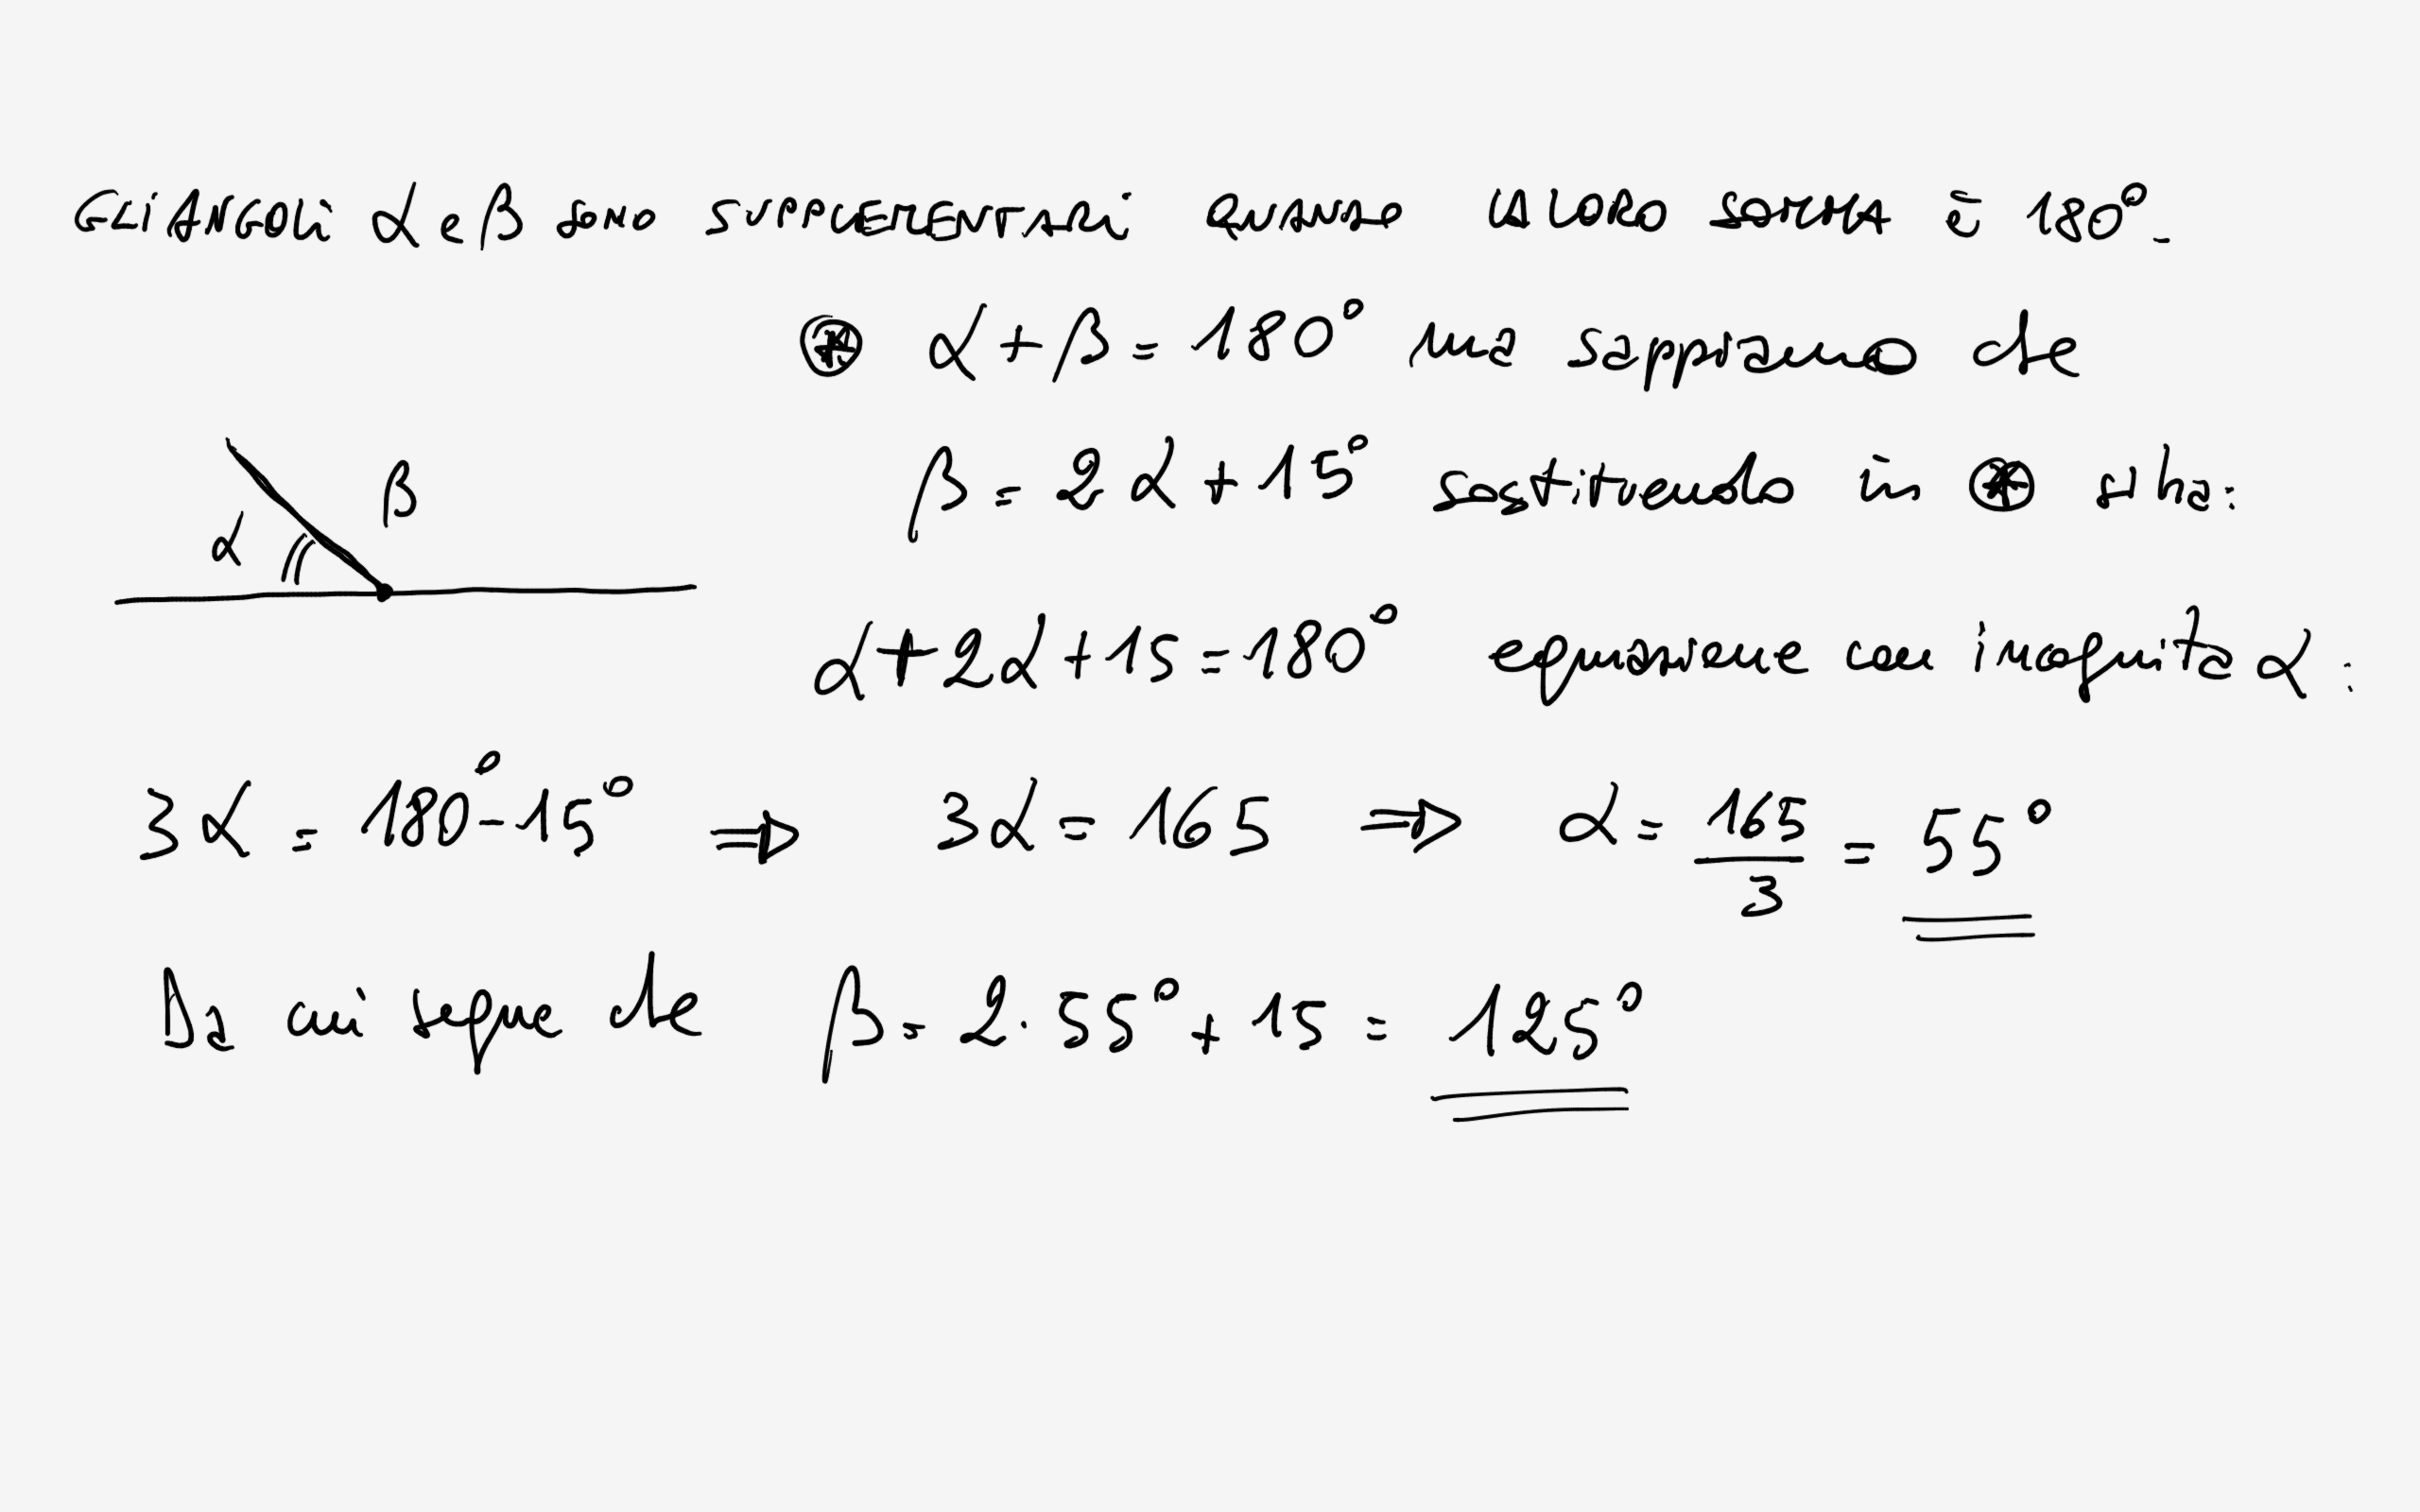 GLI ANGOLI α e β sono SUPPLEMENTARI QUANDO LA LORO SOMMA è 180°.
⊛ α + β = 180° ma sappiamo che
β = 2α + 15° sostituendo in ⊛ si ha:
β
α
α + 2α + 15 = 180° equazione con incognita α:
3α = 180° - 15° ⇒ 3α = 165 ⇒ α = 165/3 = 55°
Da cui segue che β = 2·55° + 15 = 125°